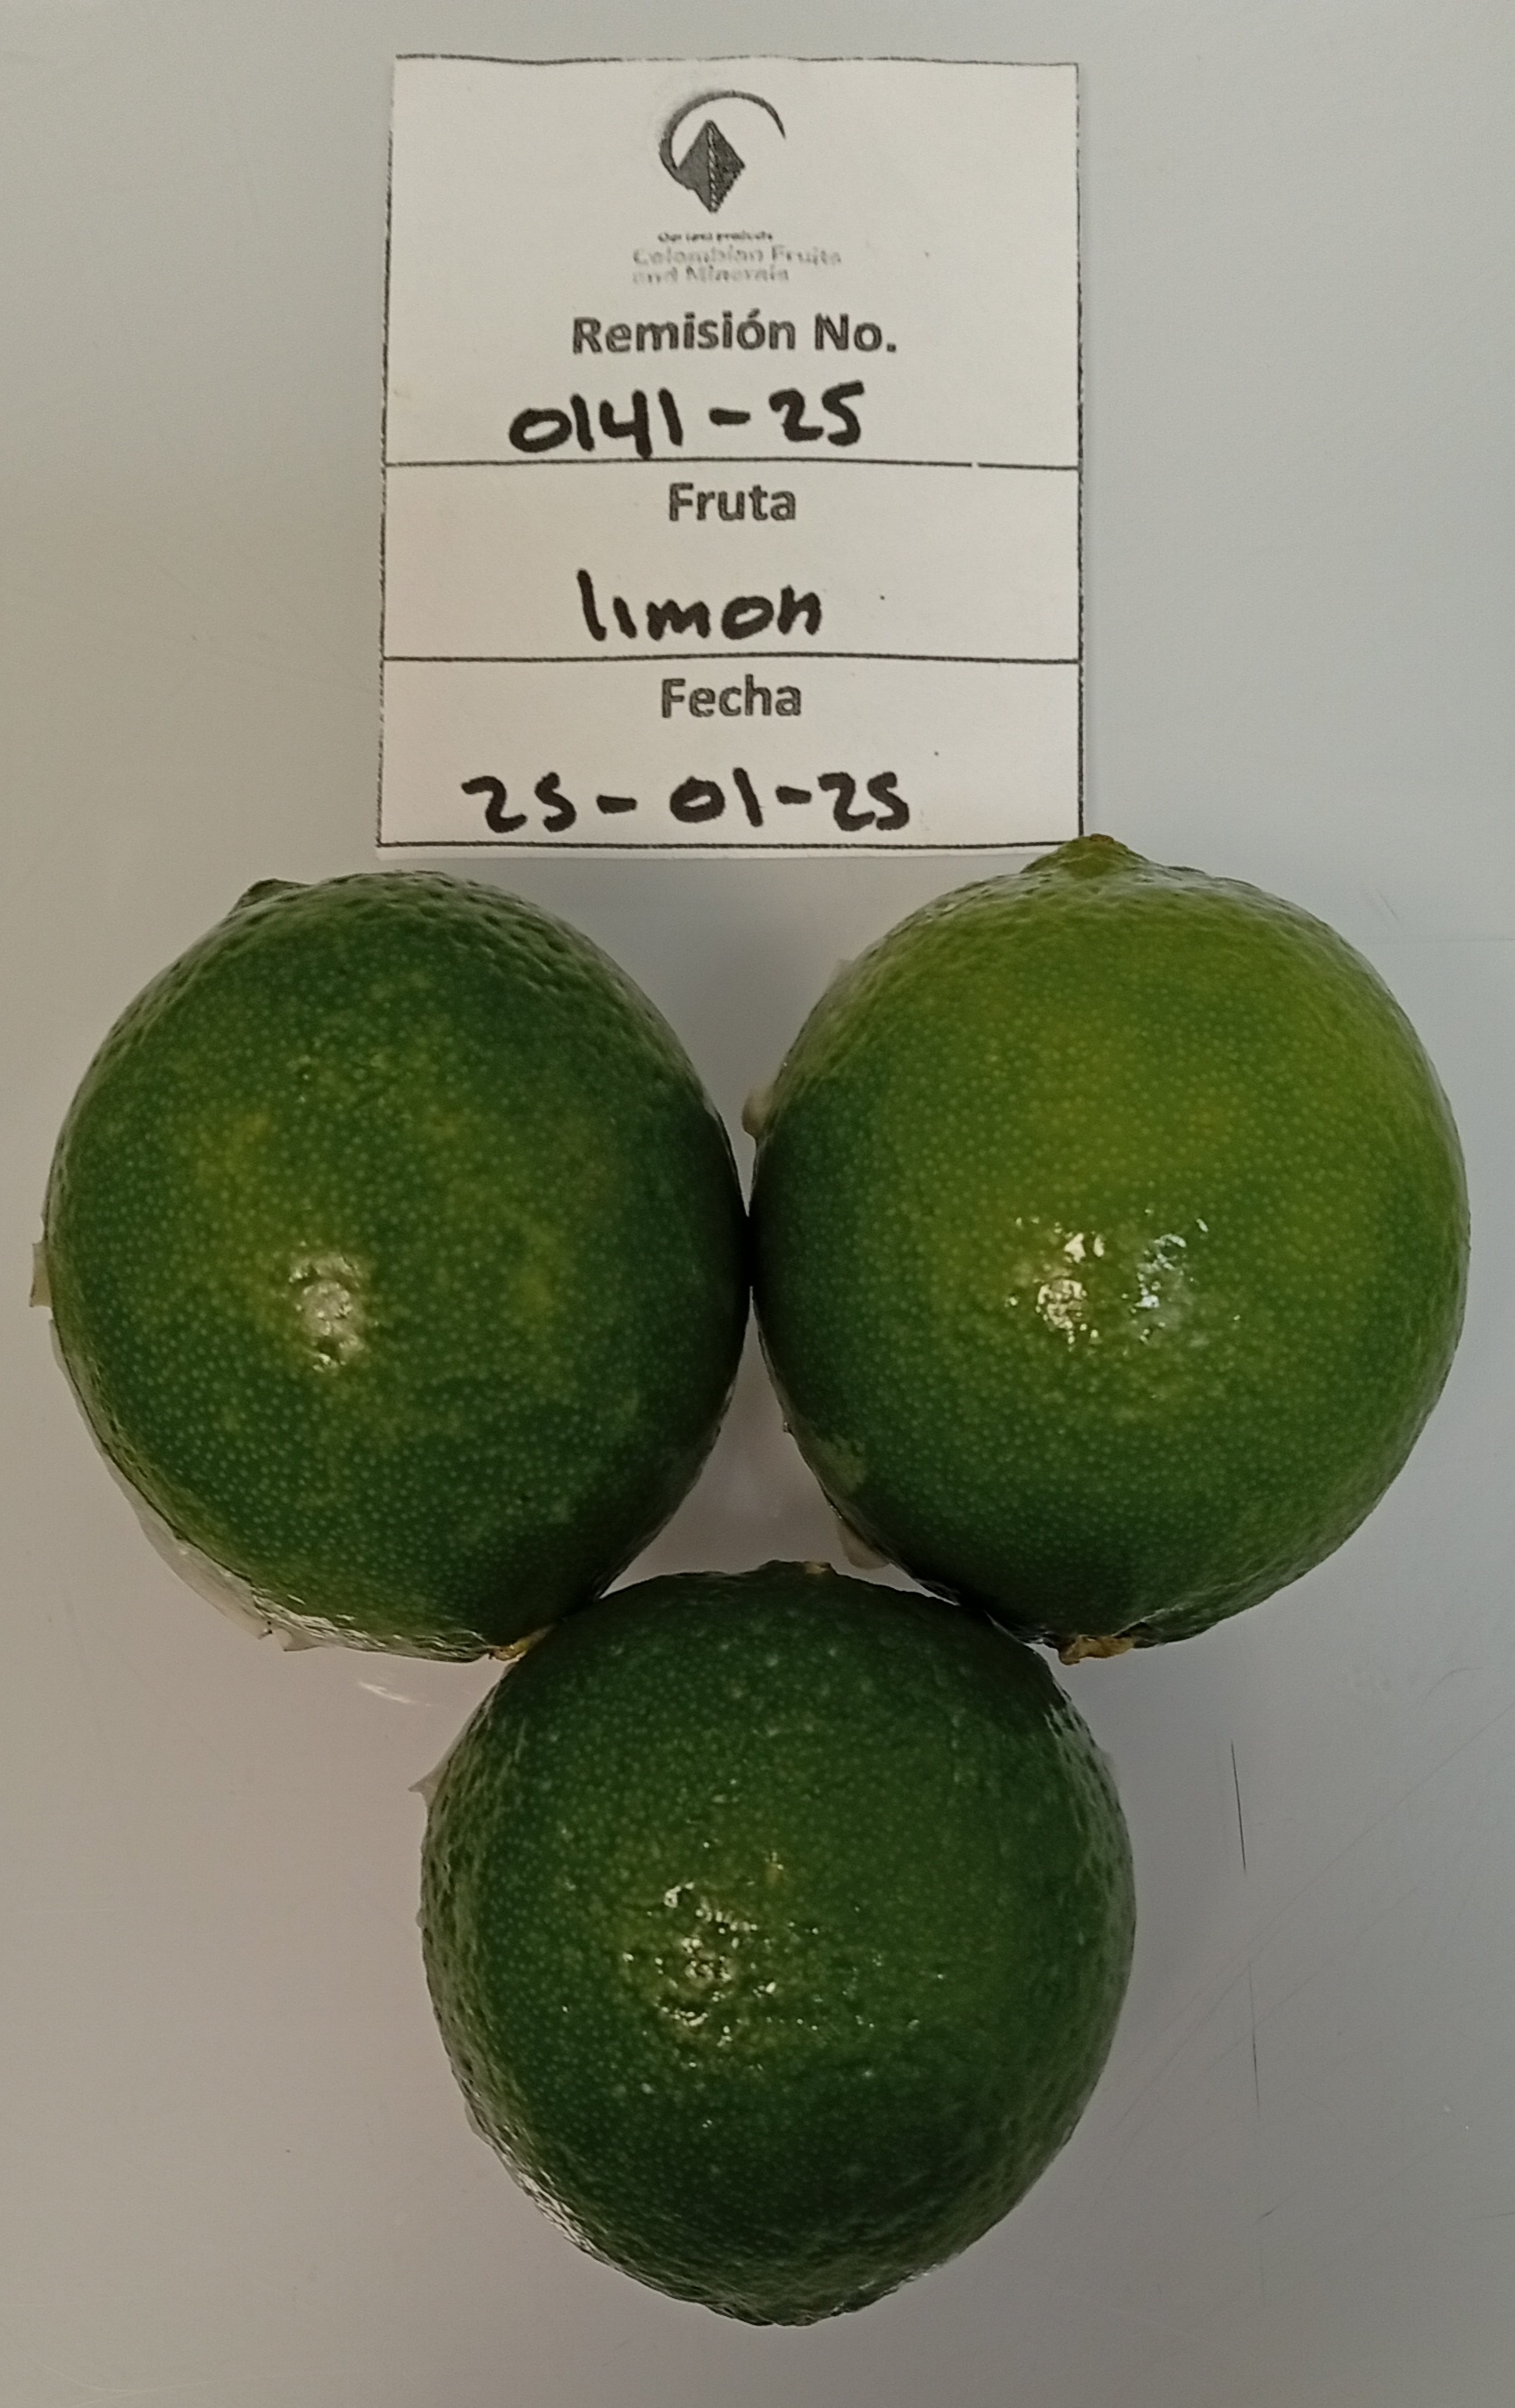 Our land products
Colombian Fruits
and Minerals
Remisión No.
0141-25
Fruta
limon
Fecha
25-01-25